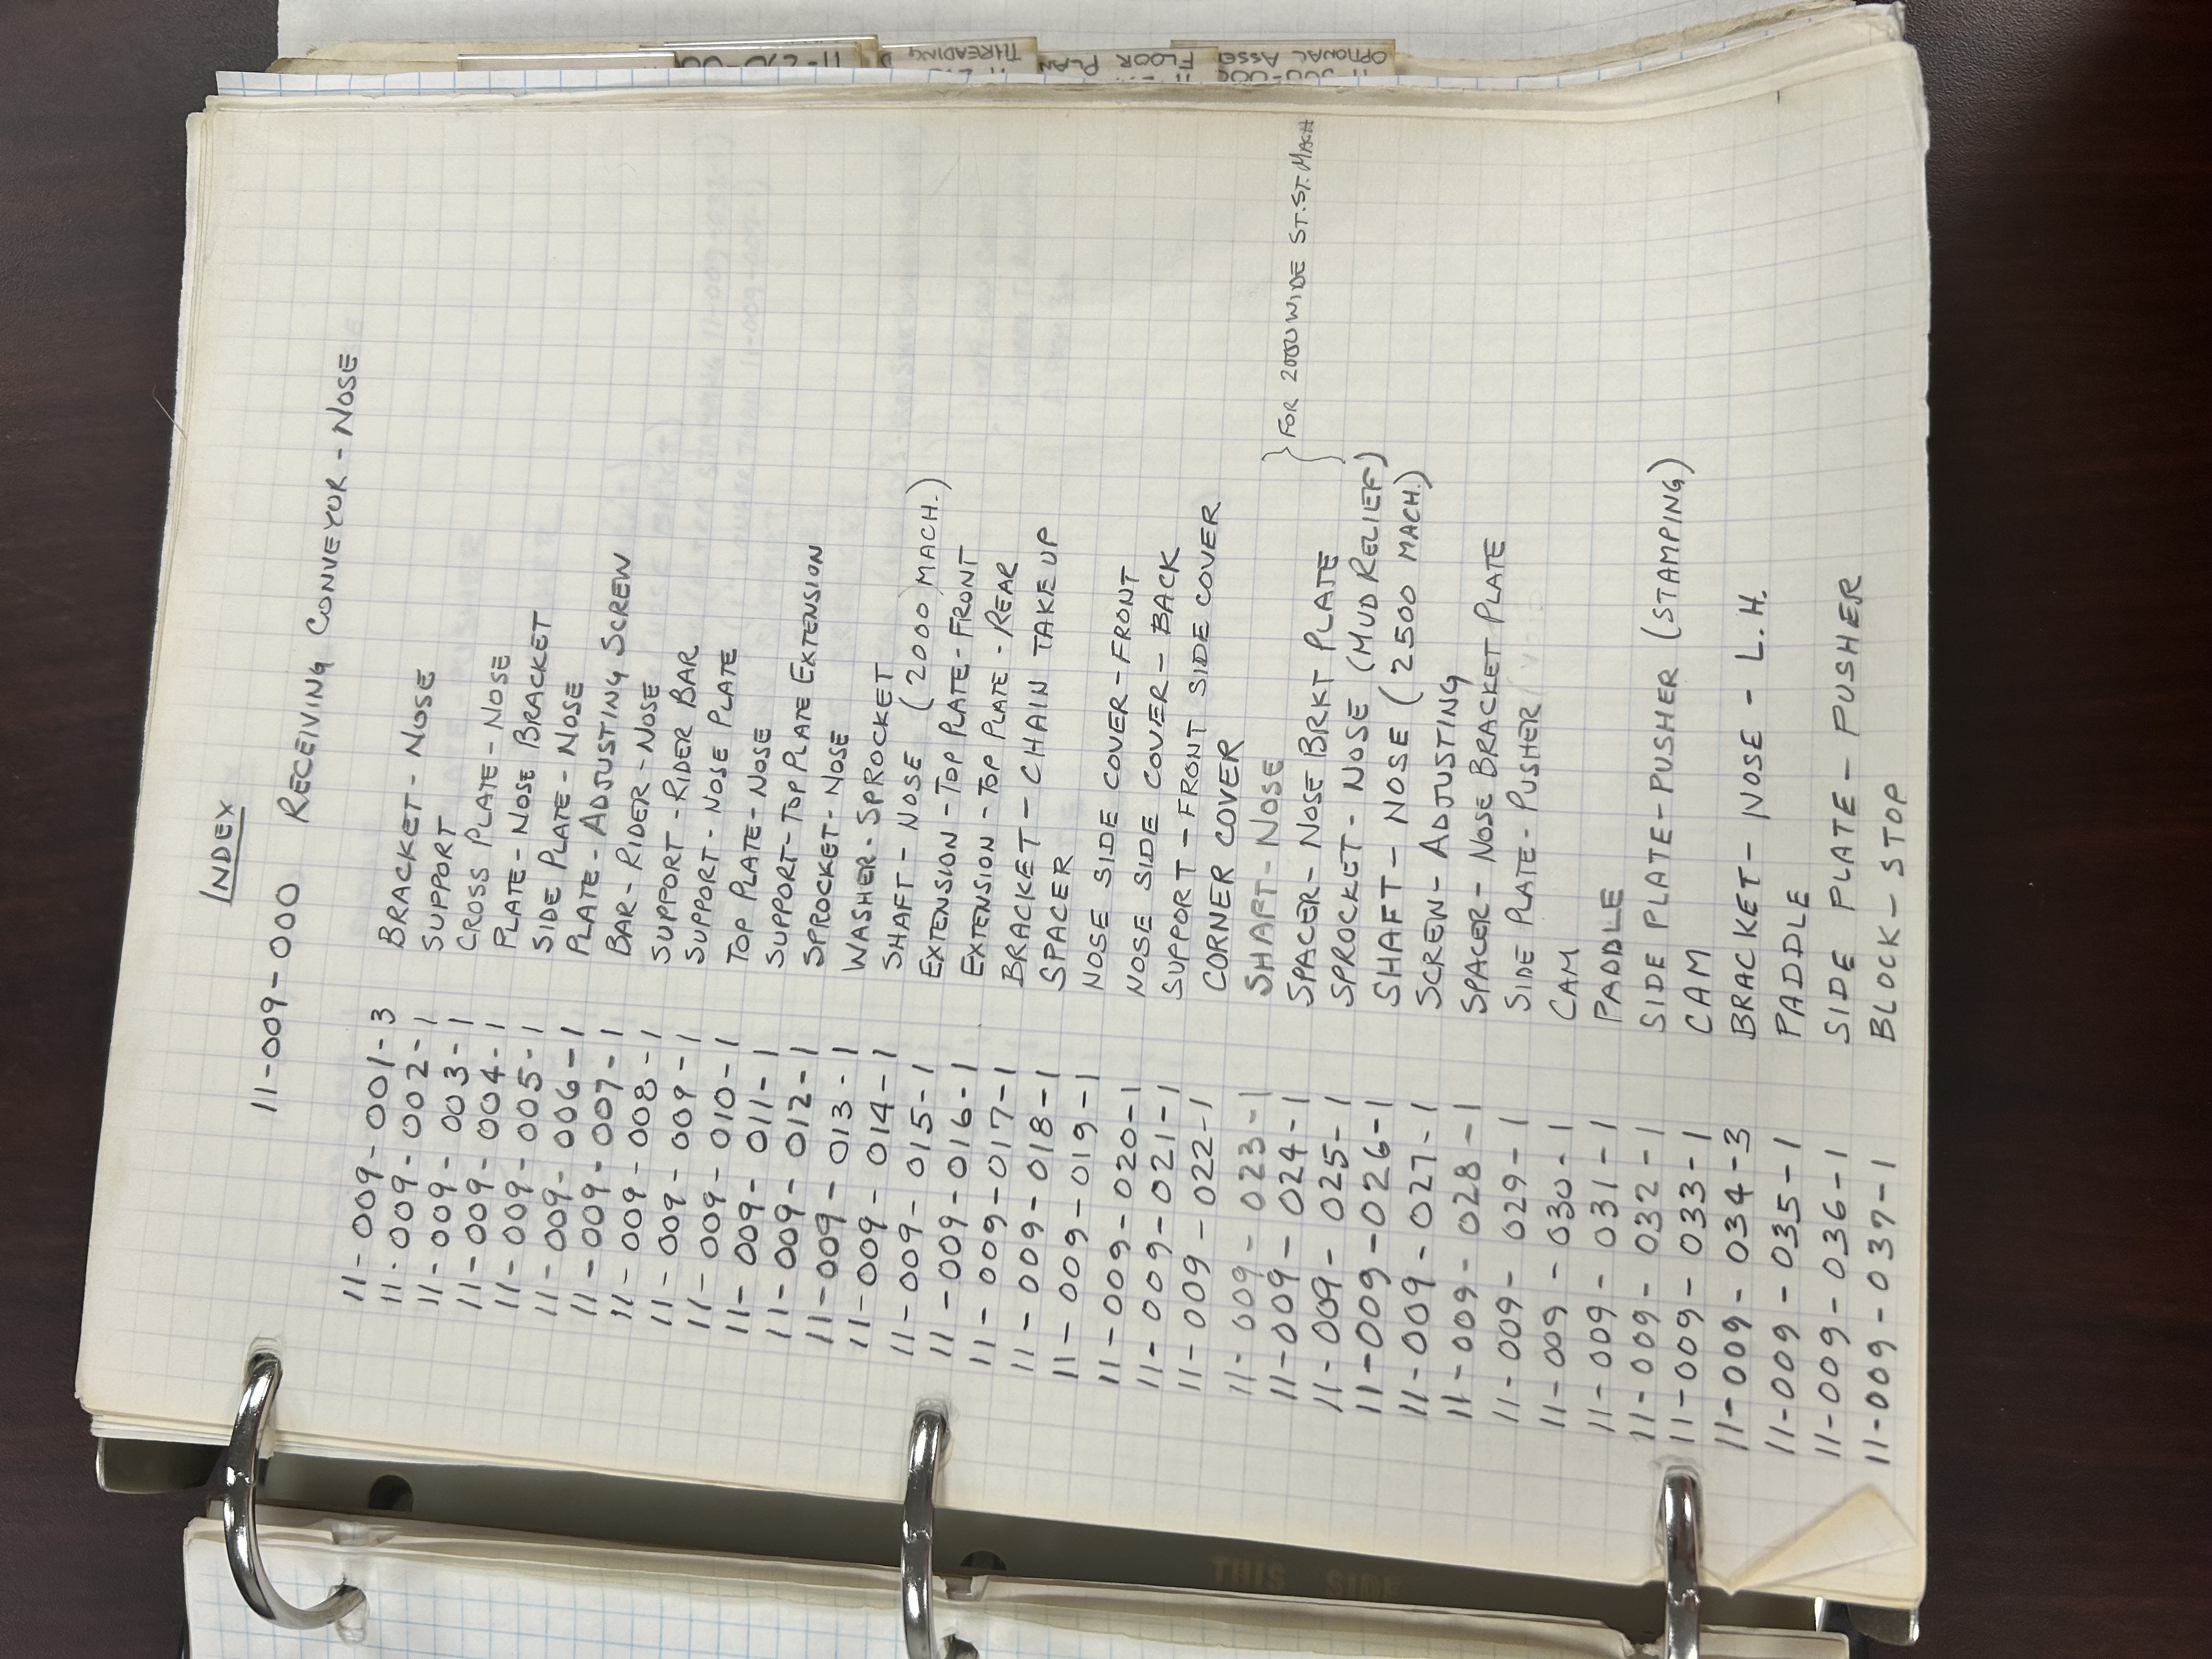 INDEX
11-009-000 RECEIVING CONVEYOR - NOSE
11-009-001-3 BRACKET - NOSE
11-009-002-1 SUPPORT
11-009-003-1 CROSS PLATE - NOSE
11-009-004-1 PLATE - NOSE BRACKET
11-009-005-1 SIDE PLATE - NOSE
11-009-006-1 PLATE - ADJUSTING SCREW
11-009-007-1 BAR - RIDER - NOSE
11-009-008-1 SUPPORT - RIDER BAR
11-009-009-1 SUPPORT - NOSE PLATE
11-009-010-1 TOP PLATE - NOSE
11-009-011-1 SUPPORT - TOP PLATE EXTENSION
11-009-012-1 SPROCKET - NOSE
11-009-013-1 WASHER - SPROCKET
11-009-014-1 SHAFT - NOSE (2000 MACH.)
11-009-015-1 EXTENSION - TOP PLATE - FRONT
11-009-016-1 EXTENSION - TOP PLATE - REAR
11-009-017-1 BRACKET - CHAIN TAKE UP
11-009-018-1 SPACER
11-009-019-1 NOSE SIDE COVER - FRONT
11-009-020-1 NOSE SIDE COVER - BACK
11-009-021-1 SUPPORT - FRONT SIDE COVER
11-009-022-1 CORNER COVER
11-009-023-1 SHAFT - NOSE
11-009-024-1 SPACER - NOSE BRKT PLATE } FOR 2000 WIDE ST. ST. MACH
11-009-025-1 SPROCKET - NOSE (MUD RELIEF)
11-009-026-1 SHAFT - NOSE (2500 MACH.)
11-009-027-1 SCREW - ADJUSTING
11-009-028-1 SPACER - NOSE BRACKET PLATE
11-009-029-1 SIDE PLATE - PUSHER
11-009-030-1 CAM
11-009-031-1 PADDLE
11-009-032-1 SIDE PLATE - PUSHER (STAMPING)
11-009-033-1 CAM
11-009-034-3 BRACKET - NOSE - L.H.
11-009-035-1 PADDLE
11-009-036-1 SIDE PLATE - PUSHER
11-009-037-1 BLOCK - STOP
THREADING
OPTIONAL ASSE FLOOR PLAN
THIS SIDE